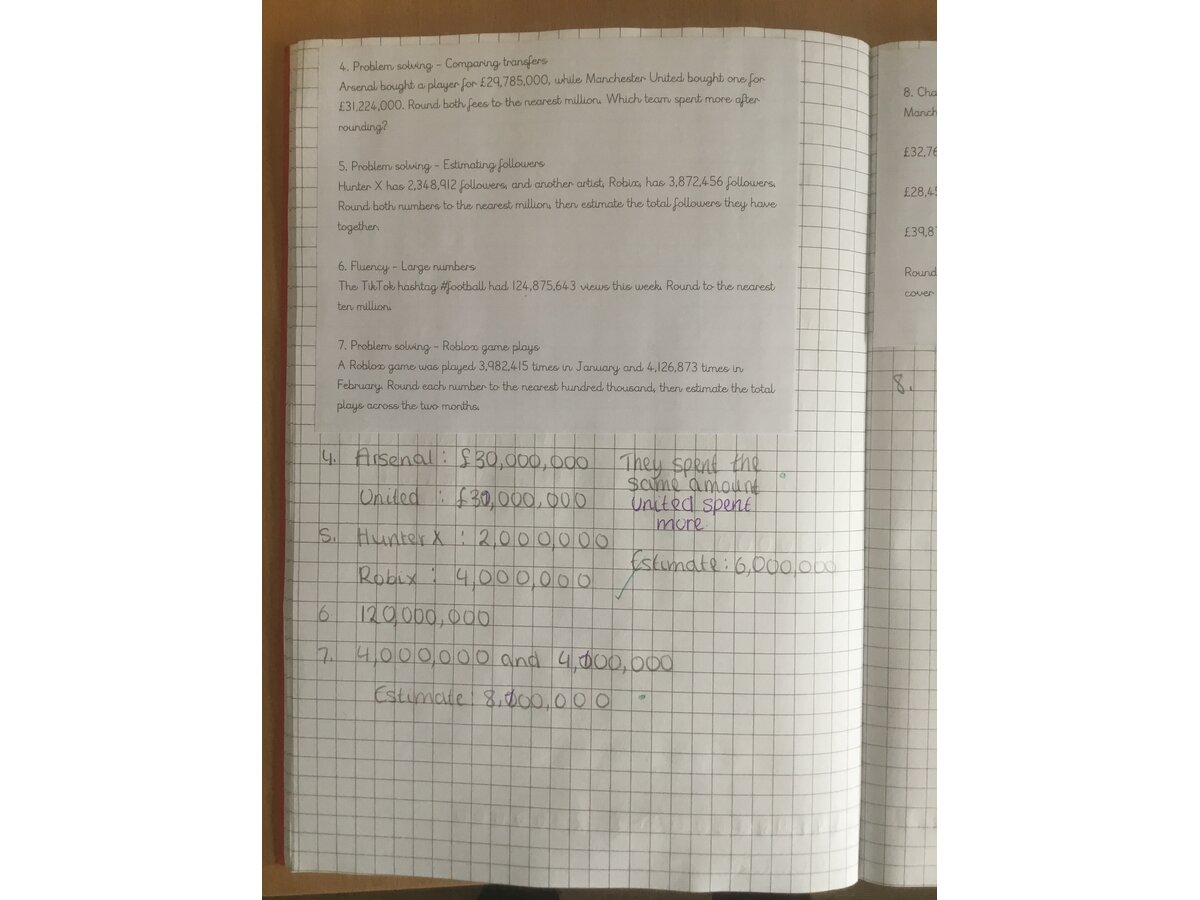 4. Problem solving - Comparing transfers
Arsenal bought a player for £29,785,000, while Manchester United bought one for
£31,224,000. Round both fees to the nearest million. Which team spent more after
rounding?
5. Problem solving - Estimating followers
Hunter X has 2,348,912 followers, and another artist, Robix, has 3,872,456 followers.
Round both numbers to the nearest million, then estimate the total followers they have
together.
6. Fluency - Large numbers
The TikTok hashtag #football had 124,875,643 views this week. Round to the nearest
ten million.
7. Problem solving - Roblox game plays
A Roblox game was played 3,982,415 times in January and 4,126,873 times in
February. Round each number to the nearest hundred thousand, then estimate the total
plays across the two months.
4. Arsenal: £30,000,000 They spent the
same amount
United : £31,000,000 United spent
more
5. Hunter X : 2,000,000
Estimate: 6,000,000
Robix : 4,000,000
6 120,000,000
7. 4,000,000 and 4,100,000
Estimate: 8,100,000
8. Cha
Manch
£32,76
£28,45
£39,87
Round
cover
8.